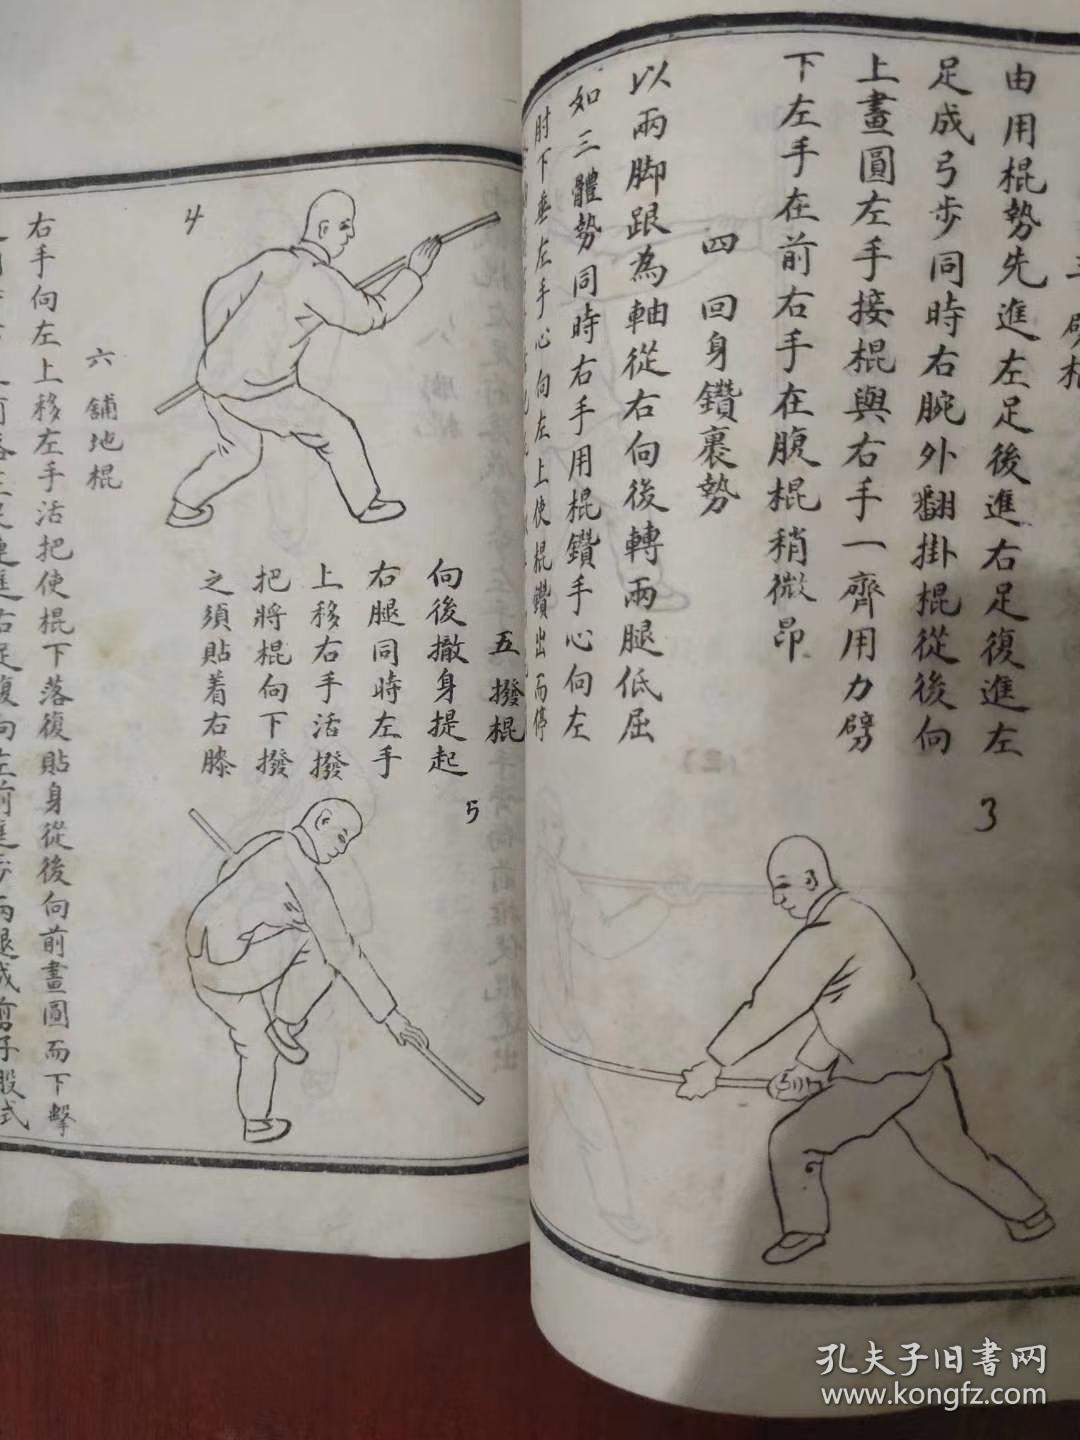 三 劈棍
由用棍勢先進左足後進右足復進左
足成弓步同時右腕外翻掛棍從後向
上畫圓左手接棍與右手一齊用力劈
下左手在前右手在腹棍稍微昂
3
四 回身鑽裹勢
以兩脚跟為軸從右向後轉兩腿低屈
如三體勢同時右手用棍鑽手心向左
肘下垂左手心向左上使棍鑽出而停
4
五 撥棍
向後撤身提起
右腿同時左手
上移右手活撥
把將棍向下撥
之須貼着右膝
5
六 舖地棍
右手向左上移左手活把使棍下落復貼身從後向前畫圓而下擊
孔夫子旧書网
www.kongfz.com